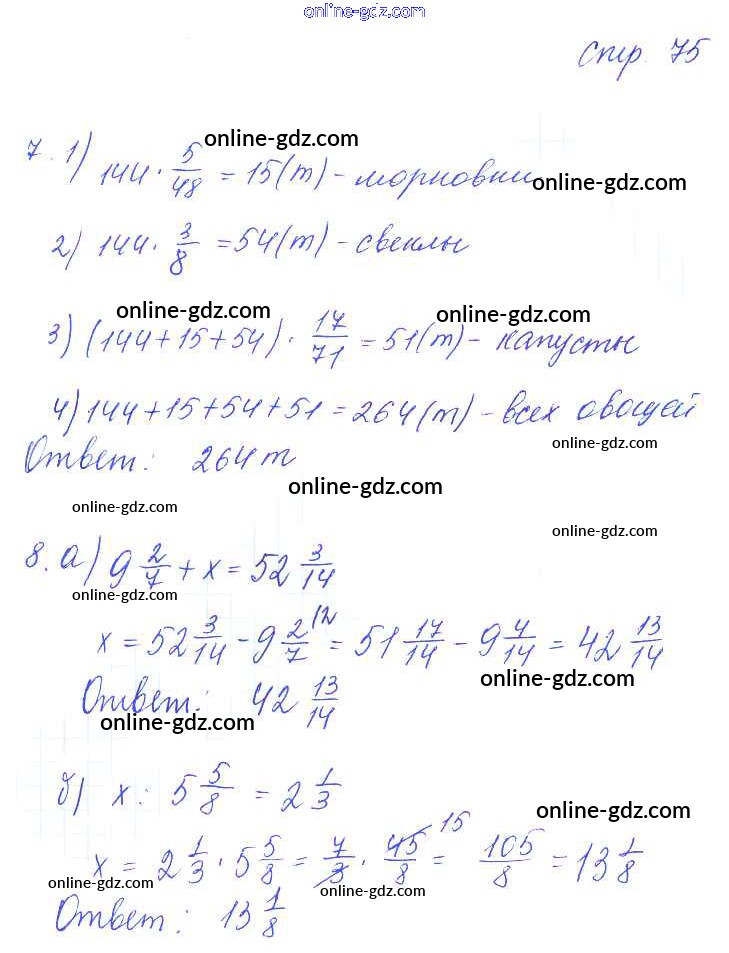 online-gdz.com
Стр. 75
online-gdz.com
7. 1) 144 · 5/48 = 15(т) - морковки
online-gdz.com
2) 144 · 3/8 = 54(т) - свеклы
online-gdz.com online-gdz.com
3) (144+15+54) · 17/71 = 51(т) - капусты
4) 144+15+54+51 = 264(т) - всех овощей
online-gdz.com
Ответ: 264 т
online-gdz.com
online-gdz.com
online-gdz.com
8. а) 9 2/7 + x = 52 3/14
online-gdz.com
x = 52 3/14 - 9 2/7 /2 = 51 17/14 - 9 4/14 = 42 13/14
online-gdz.com
Ответ: 42 13/14
online-gdz.com
б) x : 5 5/8 = 2 1/3
online-gdz.com
x = 2 1/3 · 5 5/8 = 7/3 · 45/8 15 = 105/8 = 13 1/8
online-gdz.com
online-gdz.com
Ответ: 13 1/8